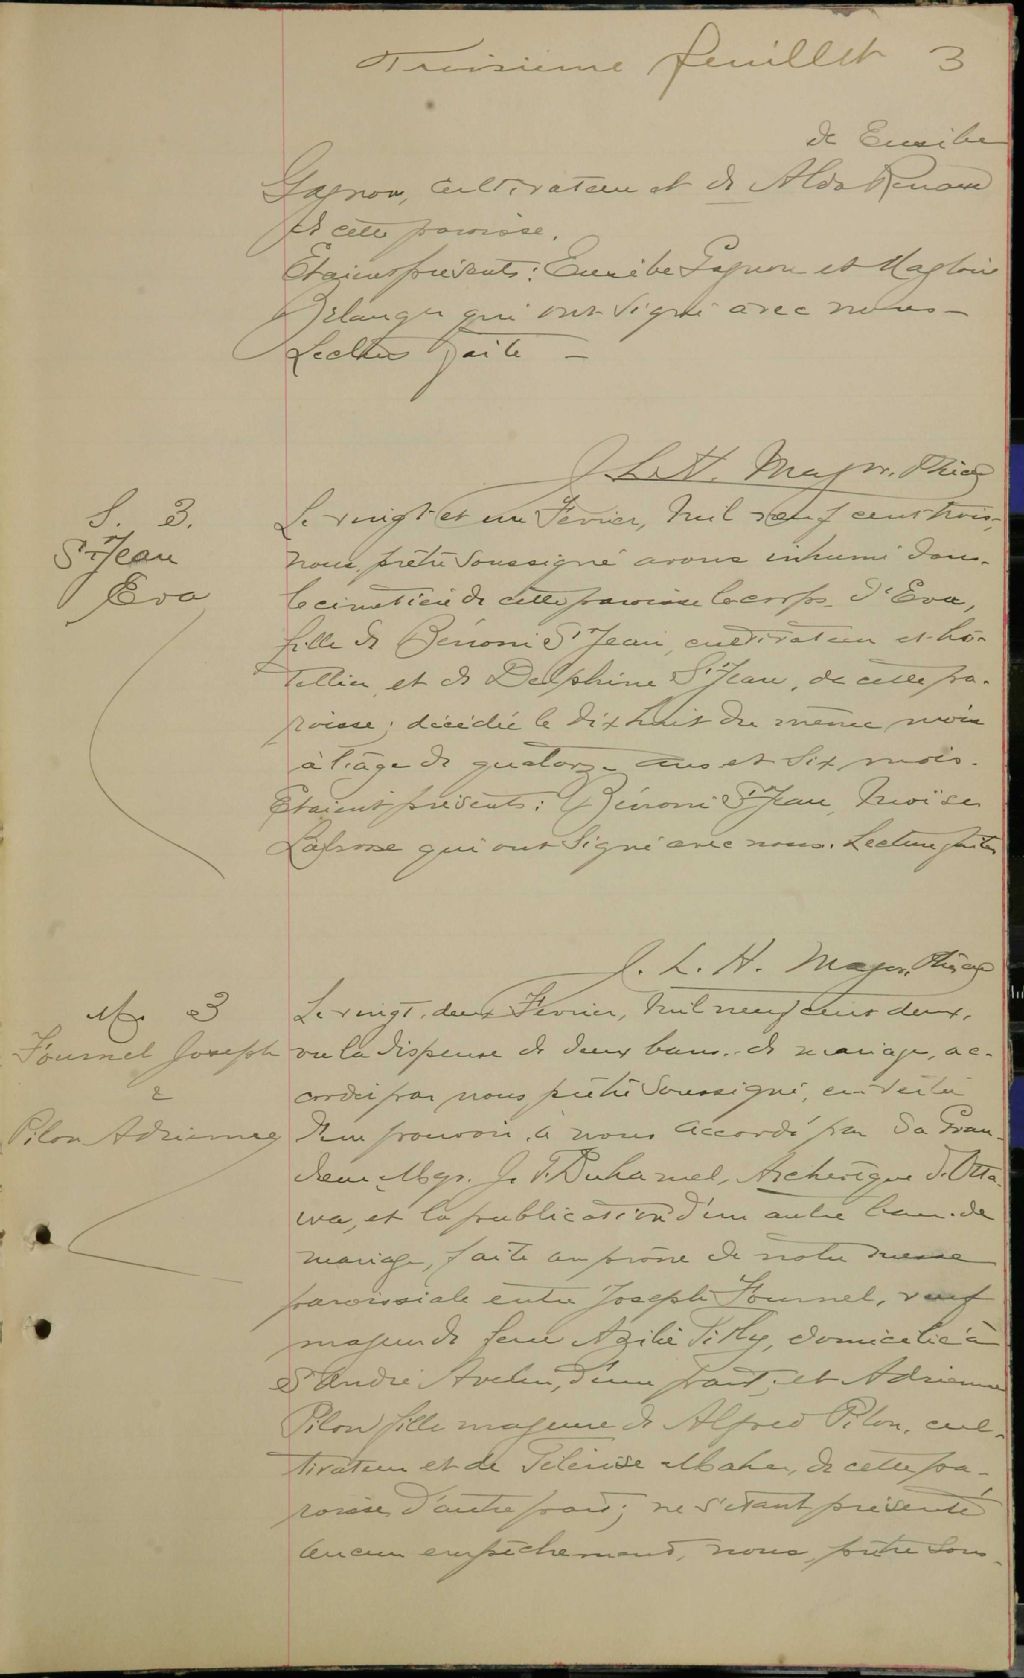 Troisième feuillet 3
de Eusèbe
Gagnon, cultivateur et de Alda Renaud
de cette paroisse.
Etaient présents: Eusèbe Gagnon et Magloire
Bélanger qui ont signé avec nous -
Lecture faite -
J. L. H. Major, Ptre
S. 3.
St Jean
Eva
Le vingt et un Février, mil neuf cent trois,
nous, prêtre soussigné avons inhumé dans
le cimetière de cette paroisse le corps d'Eva,
fille de Bénoni St Jean, cultivateur et hô-
tellier, et de Delphine St Jean, de cette pa-
roisse; décédée le dix huit du même mois
à l'âge de quatorze ans et six mois.
Etaient présents: Bénoni St Jean, Moïse
qui ont signé avec nous. Lecture faite
J. L. H. Major, Ptre
M. 3
Fournel Joseph
&
Pilon Adrienne
Le vingt-deux Février, mil neuf cent deux,
vu la dispense de deux bans de mariage, ac-
cordée par nous prêtre soussigné, en vertu
d'un pouvoir à nous accordé par Sa Gran-
deur Mgr. J. T. Duhamel, Archevêque d'Otta-
wa, et la publication d'un autre ban de
mariage, faite au prône de notre messe
paroissiale entre Joseph Fournel, veuf
majeur de feue Azilie, domicilié à
St André Avelin, d'une part; et Adrienne
Pilon fille majeure de Alfred Pilon, cul-
tivateur et de Maheu, de cette pa-
roisse d'autre part; ne s'étant présenté
aucun empêchement, nous, prêtre sous-